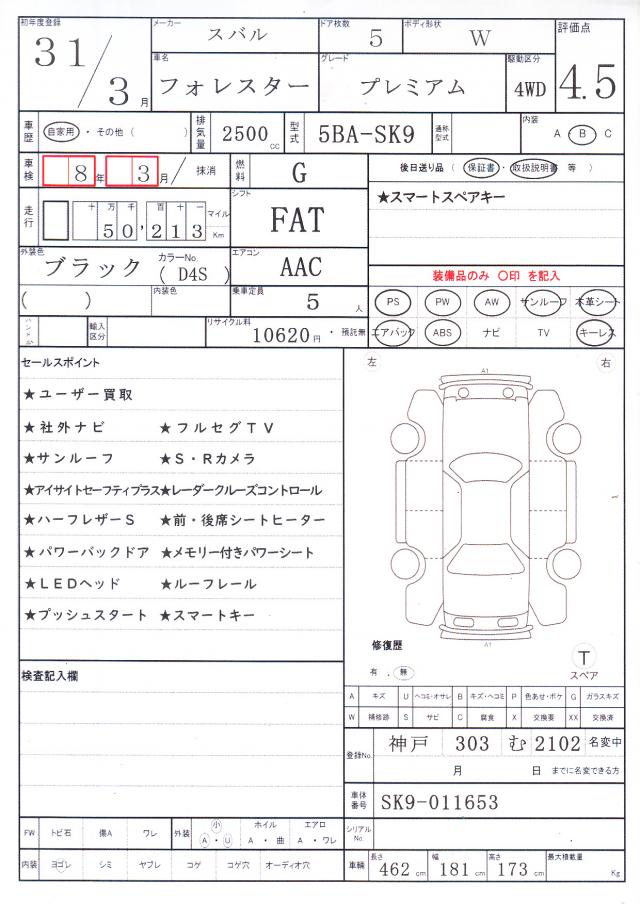 初年度登録 31/3月
メーカー スバル
ドア枚数 5
ボディ形状 W
評価点 4.5
車名 フォレスター
グレード プレミアム
駆動区分 4WD
車歴 自家用 ・ その他 ( )
排気量 2500 cc
型式 5BA-SK9
通称型式
内装 A ・ B C
車検 8年 3月/ 抹消
燃料 G
後日送り品 ( 保証書 ・ 取扱説明書 等 )
走行 十万千百十一 50,213 マイル Km
シフト FAT
★スマートスペアキー
外装色 ブラック カラーNo. ( D4S )
エアコン AAC
装備品のみ 〇印 を記入
( )
内装色
乗車定員 5人
PS PW AW サンルーフ 本革シート
エアバック ABS ナビ TV キーレス
輸入区分
リサイクル料 10620円 ・ 預託無
セールスポイント
★ユーザー買取
★社外ナビ ★フルセグTV
★サンルーフ ★S・Rカメラ
★アイサイトセーフティプラス★レーダークルーズコントロール
★ハーフレザーS ★前・後席シートヒーター
★パワーバックドア ★メモリー付きパワーシート
★LEDヘッド ★ルーフレール
★プッシュスタート ★スマートキー
左 右
A1
A1
修復歴
有 . 無
T
スペア
検査記入欄
A キズ U ヘコミ・オサレ B キズ・ヘコミ P 色あせ・ボケ G ガラスキズ
W 補修跡 S サビ C 腐食 X 交換要 XX 交換済
登録No. 神戸 303 む 2102 名変中
月 日 までに名変できる方
車体番号 SK9-011653
シリアルNo.
FW トビ石 傷A ワレ 外装 小 A ・ U ホイル A ・ 曲 エアロ A ・ ワレ
内装 ヨゴレ シミ ヤブレ コゲ コゲ穴 オーディオ穴
車輌 長さ 462 cm 幅 181 cm 高さ 173 cm 最大積載量 Kg